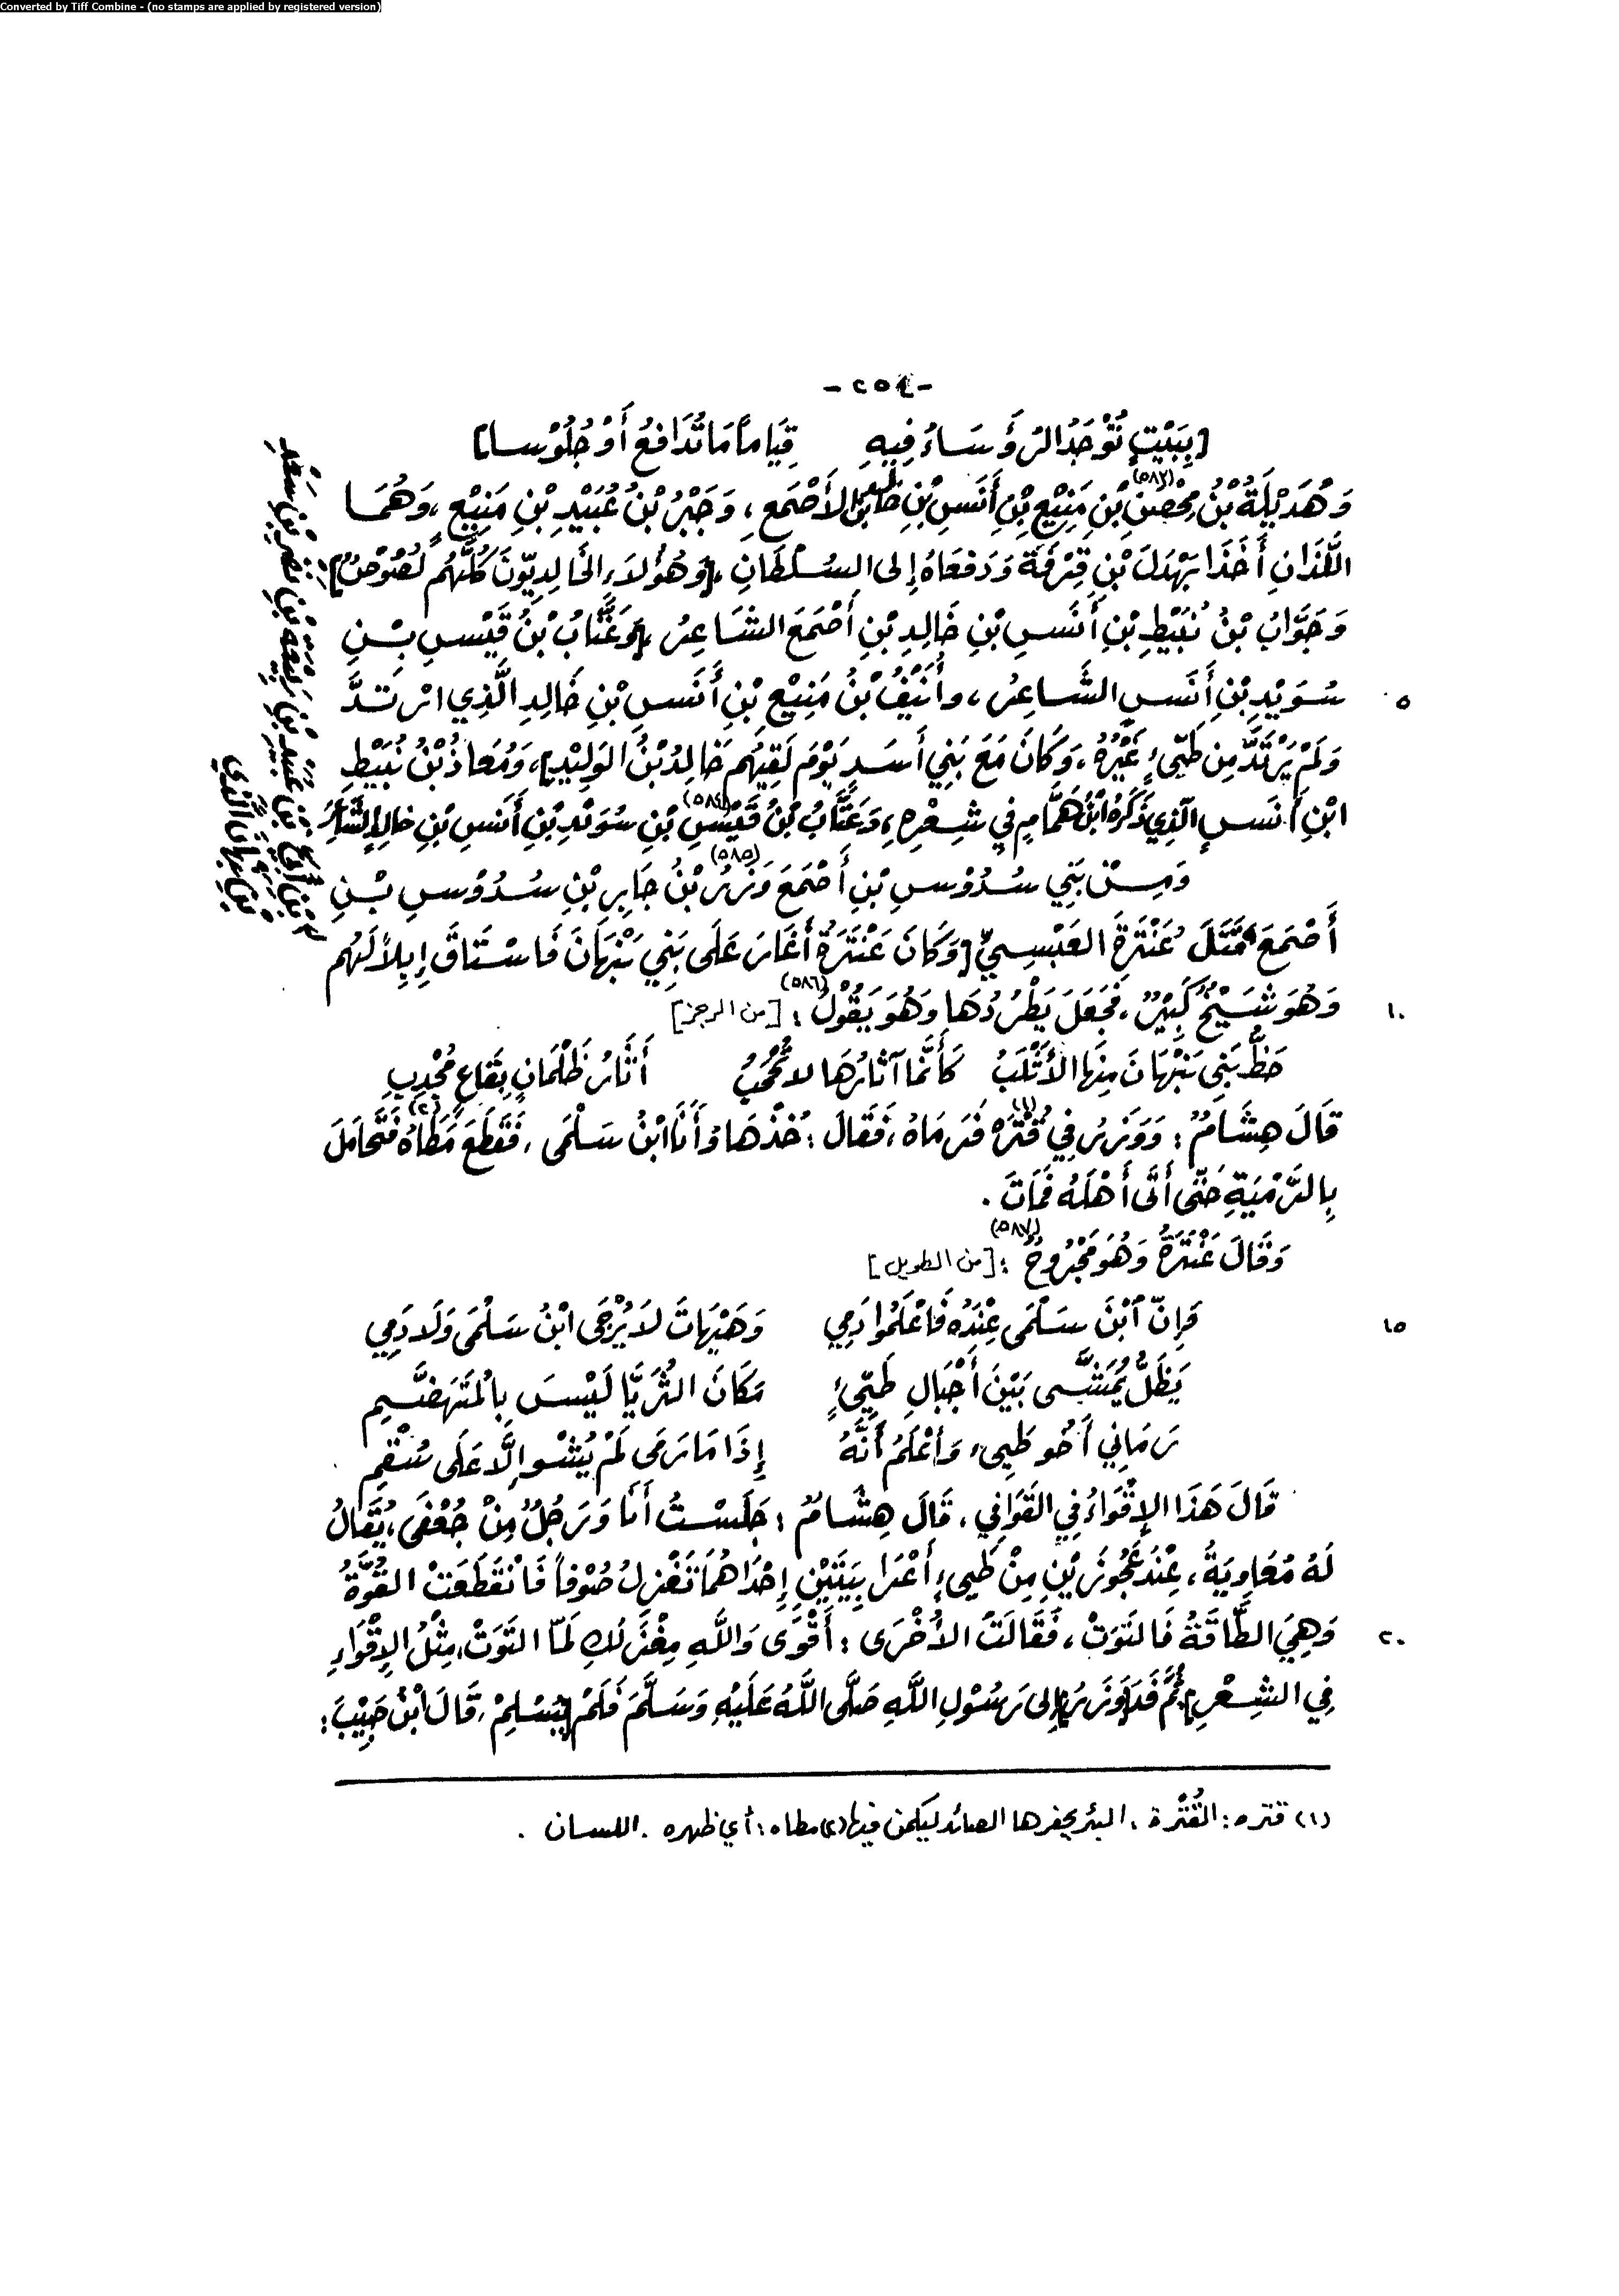 Converted by Tiff Combine - (no stamps are applied by registered version)
-٢٥٤-
[بِبَيْتٍ تُوْجَدُ الرُؤَسَاءُ فِيهِ قِيَاماً مَا تُدَافِعُ أَوْ جُلُوْسا]
وَهُدَيْلَةُ بْنُ مِحْصَنِ (٥٨٣) بْنِ مَنِيْعِ بْنِ أَنَسِ بْنِ خَالِدِ بْنِ الأَصْمَعِ، وَجَبْرُ بْنُ عُبَيْدِ بْنِ مَنِيْعٍ، وَهُمَا
اللَّذَانِ أَخَذَا بَهْدَلَ بْنِ قِرْفَةَ وَدَفَعَاهُ إِلى السُلْطَانِ، [وَهُؤُلاَءِ الخَالِدِيّوُنَ كُلُّهُم لُصُوْصٌ]
وَجَوَّابُ بْنُ نُبَيْطِ بْنِ أَنَسِ بْنِ خَالِدِ بْنِ أَصْمَعَ الشَاعِرُ، [وَعَتَّابُ بْنُ قَيْسِ بْنِ
سُوَيْدِ بْنِ أَنَسٍ الشَّاعِرُ، وأُنَيْفُ بْنُ مَنِيْعِ بْنِ أَنَسِ بْنِ خَالِدِ الَّذِي ارْتَدَّ ٥
وَلَمْ يَرْتَدَّ مِن طَيِّيءٍ غَيْرُهُ، وَكَانَ مَعَ بَنِي أَسَدٍ يَوْمَ لَقِيَهُم خَالِدُ بْنُ الوَلِيْدِ]، وَمُعَاذُ بْنُ نُبَيْطِ
ابْنِ أَنَسٍ الَّذِي ذَكَرَهُ ابْنُ هَمَّامٍ فِي شِعْرِهِ، وَعَتَّابُ بْنُ قَيْسِ (٥٨٤) بْنِ سُوَيْدِ بْنِ أَنَسِ بْنِ خالِدٍ الشَّاعِرُ
وَمِنْ بَنِي سُدُوْسِ بْنِ أَصْمَعَ وَزَرُ (٥٨٥) بْنُ جَابِرِ بْنِ سُدُوْسِ بْنِ
أَصْمَعَ قَتَلَ عَنْتَرَةَ العَبْسِيَّ [وَكَانَ عَنْتَرَةُ أَغَارَ عَلَى بَنِي نَبْهَانَ فَاسْتَاقَ إِبِلاً لَهُم
وَهُوَ شَيْخٌ كَبِيْرٌ، فَجَعَلَ يَطْرُدُهَا وَهُوَ يَقُوْلُ (٥٨٦): [من الرجز] ١٠
حَظُّ بَنِي نَبْهَانَ مِنْهَا الأَثْلَبُ كَأَنَّمَا آثَارُهَا لا تُحْجَبُ أَثَارُ ظُلْمَانٍ بِقَاعٍ مُجْدِبِ
قَالَ هِشَامٌ: وَوَزَرُ فِي قُتْرَةٍ (١) فَرَمَاهُ، فَقَالَ: خُذْهَا وَأَنَا ابْنُ سَلْمَى، فَقَطَعَ مَطَاهُ (٢) فَتَحَامَلَ
بِالرَّمْيَةِ حَتَّى أَتَى أَهْلَهُ فَمَاتَ.
وَقَالَ عَنْتَرَةُ وَهُوَ مَجْرُوحٌ (٥٨٧): [من الطويل]
فَإِنّ ابْنَ سَلْمَى عِنْدَهُ فَاعْلَمُوا دَمِي وَهَيْهَاتَ لاَ يُرْجَى ابْنُ سَلْمَى وَلَا دَمِي ١٥
يَظَلُّ يُمَشَّى بَيْنَ أَجْبَالِ طَيِّيءٍ مَكَانَ الثُّرَيَّا لَيْسَ بِالْمَتَهَضَّمِ
رَمَانِي أَخُو طَيِىء وَأَعْلَمُ أَنَّهُ إِذَا مَا رَمَى لَمْ يُشْوِ إِلَّا عَلَى سُقْمِ
قَالَ هَذَا الإِقْوَاءُ فِي القَوَافِي، قَالَ هِشَامٌ: جَلَسْتُ أَنَا وَرَجُلٌ مِنْ جُعْفَى، يُقَالُ
لَهُ مُعَاوِيَةُ، عِنْدَ عَجُوزَيْنِ مِنْ طَيىءٍ أَعْرَابِيَتَيْنِ إِحْدَاهُمَا تَغْزِلُ صُوْفاً فَانْقَطَعَتْ القُوَّةُ
وَهِيَ الطَّاقَةُ فَالتَوَتْ، فَقَالَتِ الأُخْرَى: أَقْوَى وَاللَّهِ مِغْزَلُكِ لَمّا التَوَتْ، مِثْلُ الإِقْوَاءِ ٢٠
فِي الشِعْرِ] ثُمَّ وَفَدَ [وَزَرُ] إِلى رَسُوْلِ اللَّهِ صَلَّى اللَّهُ عَلَيْهِ وَسَلَّمَ فَلَمْ يُسْلِمْ، قَالَ ابْنُ حَبِيْبَ:
(١) قتره: القُتْرة، البئر يحفرها الصائد ليكمن فيها (٢) مطاه: أي ظهره. اللسان.